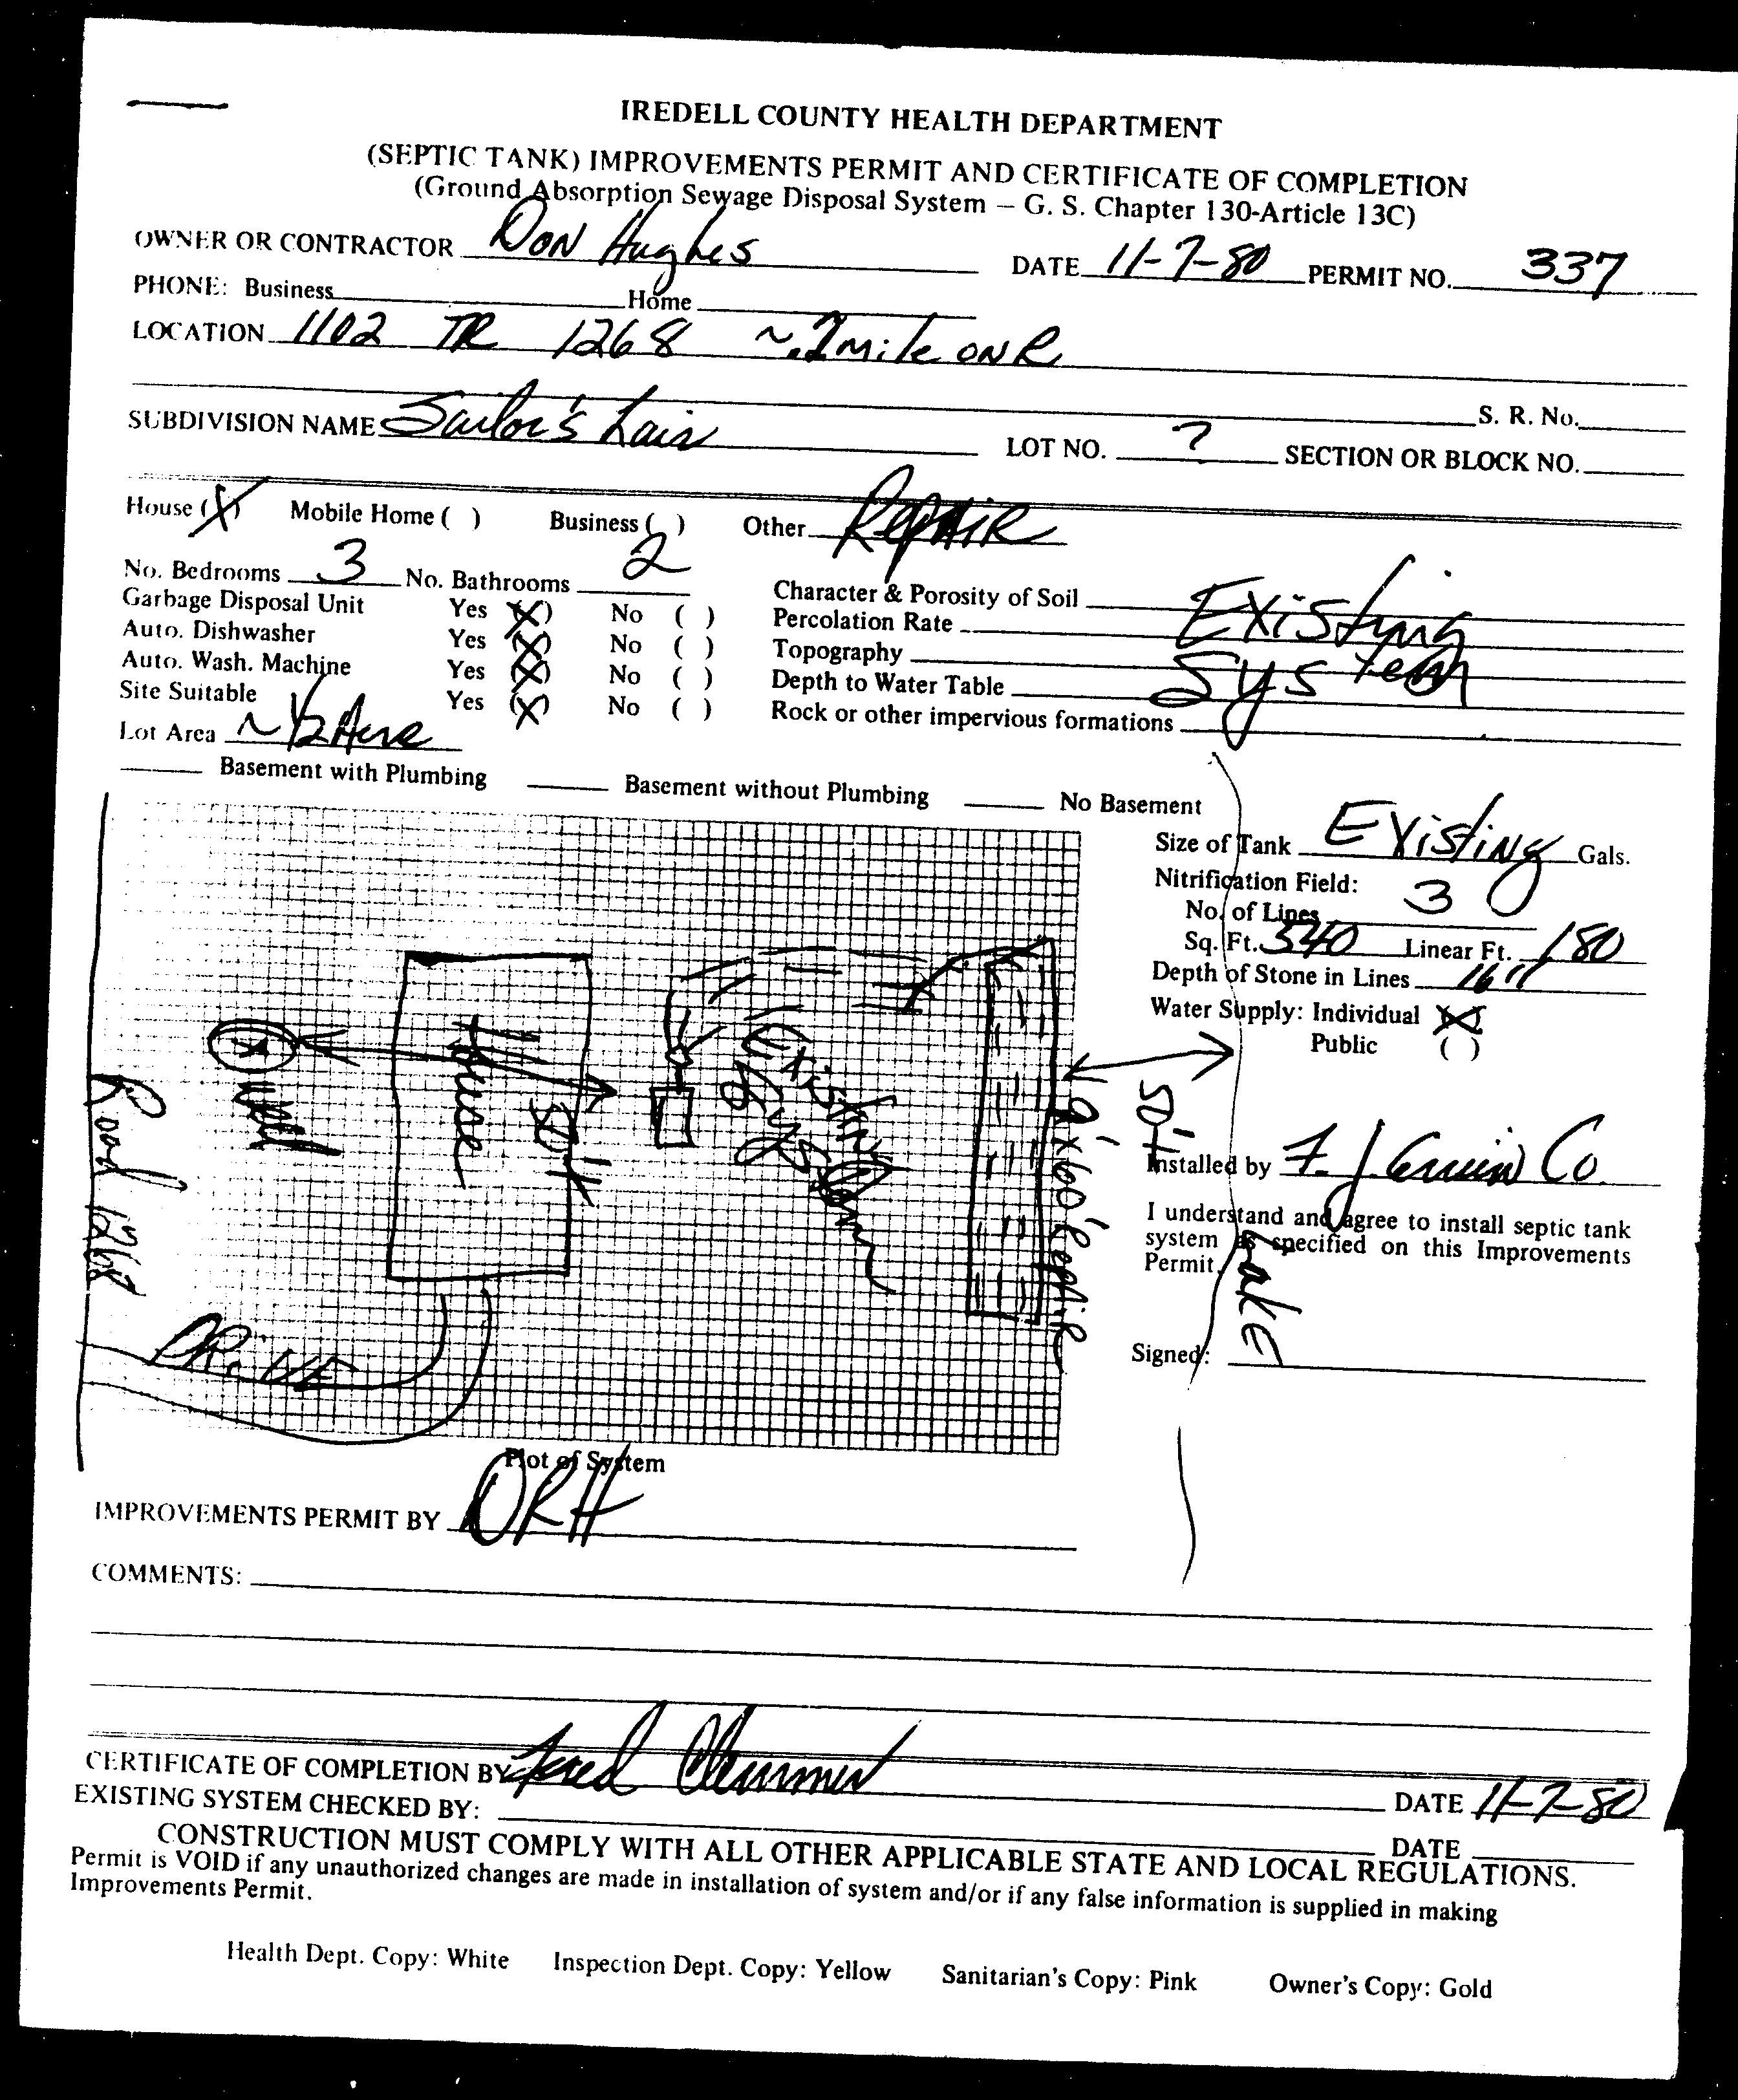 IREDELL COUNTY HEALTH DEPARTMENT
(SEPTIC TANK) IMPROVEMENTS PERMIT AND CERTIFICATE OF COMPLETION
(Ground Absorption Sewage Disposal System – G. S. Chapter 130-Article 13C)
OWNER OR CONTRACTOR Don Hughes DATE 11-7-80 PERMIT NO. 337
PHONE: Business Home
LOCATION 1102 TR 1268 ~.2 mile on R
S. R. No.
SUBDIVISION NAME Sailor's Lair LOT NO. ? SECTION OR BLOCK NO.
House (X) Mobile Home ( ) Business ( ) Other Repair
No. Bedrooms 3 No. Bathrooms 2
Garbage Disposal Unit Yes (X) No ( )
Auto. Dishwasher Yes (X) No ( )
Auto. Wash. Machine Yes (X) No ( )
Site Suitable Yes (X) No ( )
Lot Area ~ 1/2 Acre
Character & Porosity of Soil Existing
Percolation Rate
Topography System
Depth to Water Table
Rock or other impervious formations
Basement with Plumbing Basement without Plumbing No Basement
Size of Tank Existing Gals.
Nitrification Field:
No. of Lines 3
Sq. Ft. 540 Linear Ft. 180
Depth of Stone in Lines 16"
Water Supply: Individual (X)
Public ( )
Installed by F. J. Co.
I understand and agree to install septic tank
system as specified on this Improvements
Permit.
Signed:
Road 1268
Well
House
50'+
Existing
System
9'x60' Repair
50'+
Lake
Drive
Plot of System
IMPROVEMENTS PERMIT BY DRH
COMMENTS:
CERTIFICATE OF COMPLETION BY Fred Clemmer DATE 11-7-80
EXISTING SYSTEM CHECKED BY: DATE
CONSTRUCTION MUST COMPLY WITH ALL OTHER APPLICABLE STATE AND LOCAL REGULATIONS.
Permit is VOID if any unauthorized changes are made in installation of system and/or if any false information is supplied in making
Improvements Permit.
Health Dept. Copy: White Inspection Dept. Copy: Yellow Sanitarian's Copy: Pink Owner's Copy: Gold